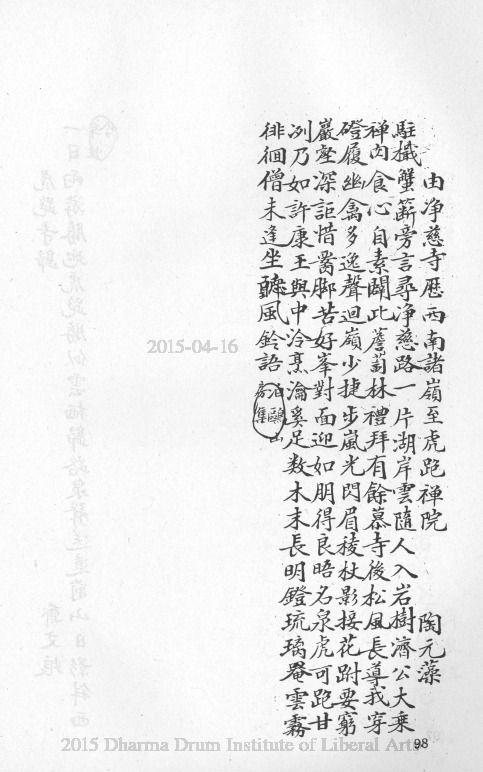 由淨慈寺歷西南諸嶺至虎跑禪院 陶元藻
駐檝蟹簖旁言尋淨慈路一片湖岸雲隨人入岩樹濟公大乘
禪肉食心自素闢此薝蔔林禮拜有餘慕寺後松風長導我穿
磴履幽禽多逸聲迴嶺少捷步嵐光閃眉稜杖影接花跗要窮
巖壑深詎惜罥脚苦好峯對面迎如朋得良晤名泉虎可跑甘
冽乃如許康王與中泠烹瀹奚足数木末長明鐙琉璃罨雲霧
徘徊僧未逢坐聽風鈴語
泊鷗山
房集
2015-04-16
98
2015 Dharma Drum Institute of Liberal Arts